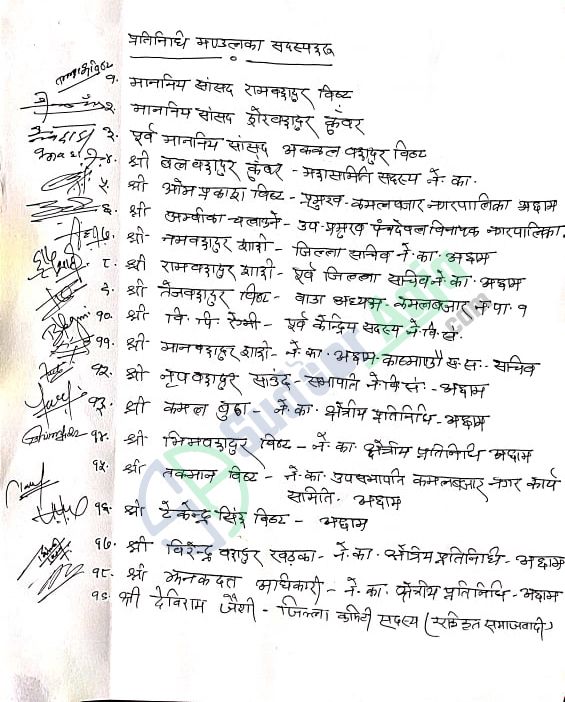 प्रतिनिधि मण्डलका सदस्यहरू
१. माननिय सांसद रामबहादुर विष्ट
२. माननिय सांसद शेरबहादुर कुंवर
३. पूर्व माननिय सांसद बहादुर विष्ट
४. श्री बलबहादुर कुंवर - महासमिति सदस्य ने. का.
५. श्री ओम प्रकाश विष्ट - प्रमुख - कमलबजार नगरपालिका अछाम
६. श्री अम्वीका चलाउने - उप-प्रमुख पंचदेवल विनायक नगरपालिका.
७. श्री बहादुर शाही - जिल्ला सचिव ने. का. अछाम
८. श्री रामबहादुर शाही - पूर्व जिल्ला सचिव ने. का. अछाम
९. श्री तेजबहादुर विष्ट - वाडा अध्यक्ष कमलबजार न. पा. १
१०. श्री वि. पि. रेग्मी - पूर्व केन्द्रिय सदस्य ने. वि. सं.
११. श्री मानबहादुर शाही - ने. का. अछाम काठमाण्डौ स. सचिव
१२. श्री नृपबहादुर साउद - सभापति ने. वि. सं. - अछाम
१३. श्री कमल बुढा - ने. का. क्षेत्रीय प्रतिनिधि - अछाम
१४. श्री भिमबहादुर विष्ट - ने. का. क्षेत्रीय प्रतिनिधि - अछाम
१५. श्री तकमान विष्ट - ने. का. उपसभापति कमलबजार नगर कार्य
समिति - अछाम
१६. श्री टेकेन्द्र सिंह विष्ट - अछाम
१७. श्री विरेन्द्र बहादुर खड्का - ने. का. क्षेत्रिय प्रतिनिधि - अछाम
१८. श्री झनकदत्त अधिकारी - ने. का. क्षेत्रीय प्रतिनिधि - अछाम
१९. श्री देविराम जैशी - जिल्ला कमिटी सदस्य (एकिकृत समाजवादी)
SudurAajo.com